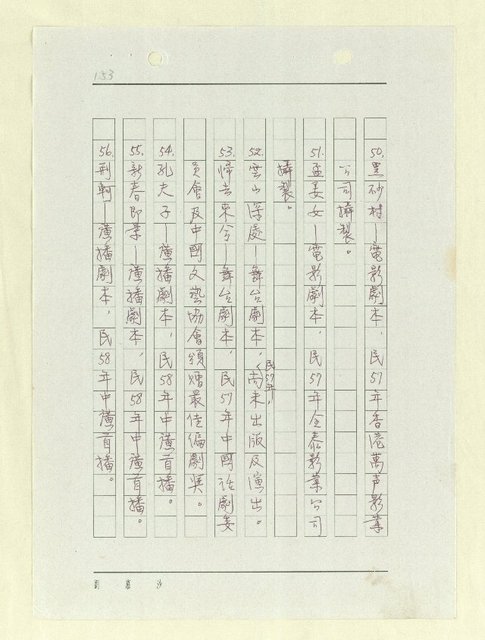 153
50.黑砂村—電影劇本,民57年香港萬声影業
公司攝製。
51.孟姜女—電影劇本,民57年金泰影業公司
攝製。
52.雲山深處—舞台劇本,民57年,(尚未出版及演出。
53.歸去來兮—舞台劇本,民57年中國話劇委
員會及中國文藝協會頒贈最佳編劇獎。
54.孔夫子—廣播劇本,民58年中廣首播。
55.新春即景—廣播劇本,民58年中廣首播。
56.荊軻—廣播劇本,民58年中廣首播。
劉慕沙